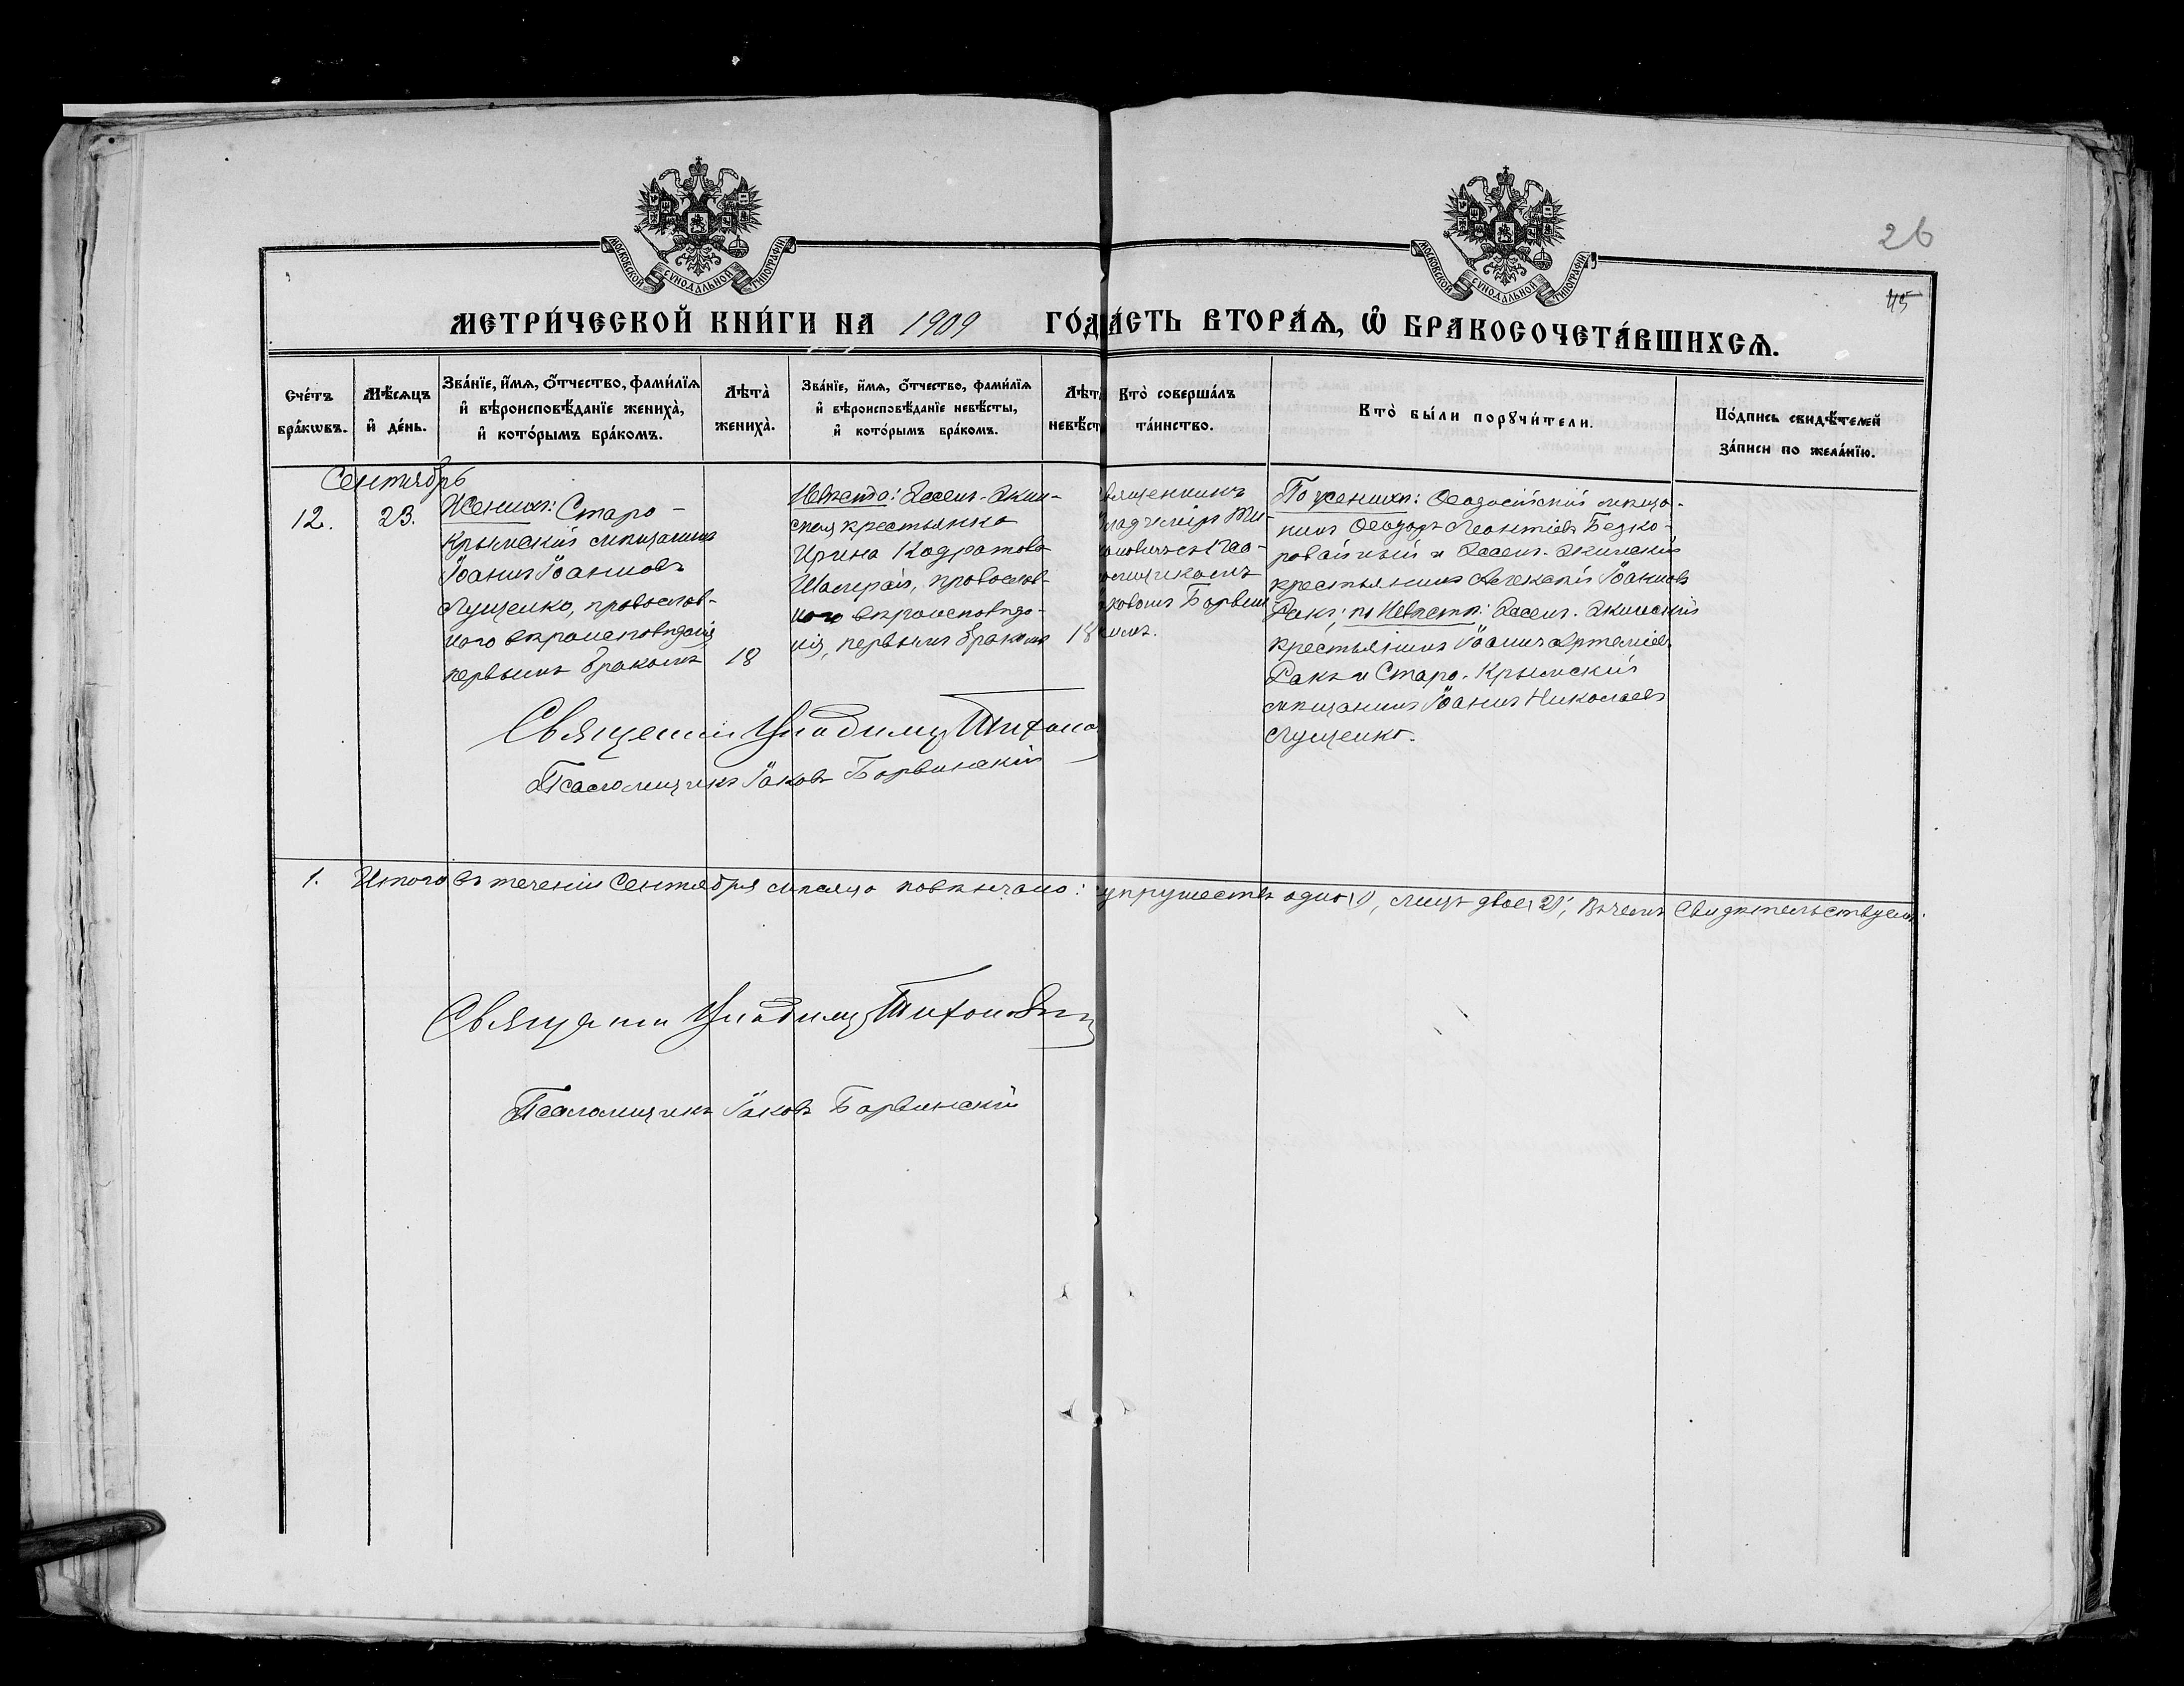 МОСКОВСКОЙ СѴНОДАЛЬНОЙ ТИПОГРАФІИ
МОСКОВСКОЙ СѴНОДАЛЬНОЙ ТИПОГРАФІИ
26
45
МЕТРИ́ЧЕСКОЙ КНИ́ГИ НА 1909 ГО́Д
А́СТЬ ВТОРА́Ѧ, Ѽ БРАКОСОЧЕТА́ВШИХСѦ.
Сче́тъ бра́кѡвъ.
Мѣ́сяцъ и҆ де́нь.
Зва́нїе, и҆́мѧ, ѻ҆́тчество, фами́лїѧ
и҆ вѣроисповѣ́данїе жениха̀,
и҆ кото́рымъ бра́комъ.
Лѣта̀ жениха̀.
Зва́нїе, и҆́мѧ, ѻ҆́тчество, фами́лїѧ
и҆ вѣроисповѣ́данїе невѣ́сты,
и҆ кото́рымъ бра́комъ.
Лѣт невѣ́ст
Кто̀ соверша́лъ
та́инство.
Кто̀ бы́ли порꙋчи́тели.
По́дпись свидѣ́телей
за́писи по жела́нїю.
Сентябрь
12.
23.
Женихъ: Старо-
Крымскій мѣщанинъ
Іоаннъ Іоанновъ
Лущенко, православ-
наго вѣроисповѣданія
первымъ бракомъ
18
Невѣста:
ская крестьянка
Ирина Кодратова
православ-
наго вѣроисповѣда-
нія, первымъ бракомъ
18
вященникъ
ладиміръ Ти-
оновичъ съ Пса-
омщикомъ
ковомъ Борвин
имъ.
По женихѣ: Ѳеодосійскій мѣща-
нинъ Ѳеодоръ Леонтіевъ Безко-
ровайный и
крестьянинъ Алексѣй Іоанновъ
Ракъ; по Невѣстѣ:
крестьянинъ Іоаннъ Артеміевъ
Ракъ и Старо-Крымскій
мѣщанинъ Іоаннъ Николаевъ
Лущенко.
Священник Владимир Тихоно
Псаломщикъ Іаковъ Борвинскій
1. Итого въ теченіи Сентября мѣсяца повѣнчано: супружествъ одно (1), лицъ двое (2), въ чемъ свидѣтельствуемъ:
Священник Владимир Тихонович
Псаломщикъ Іаковъ Борвинскій